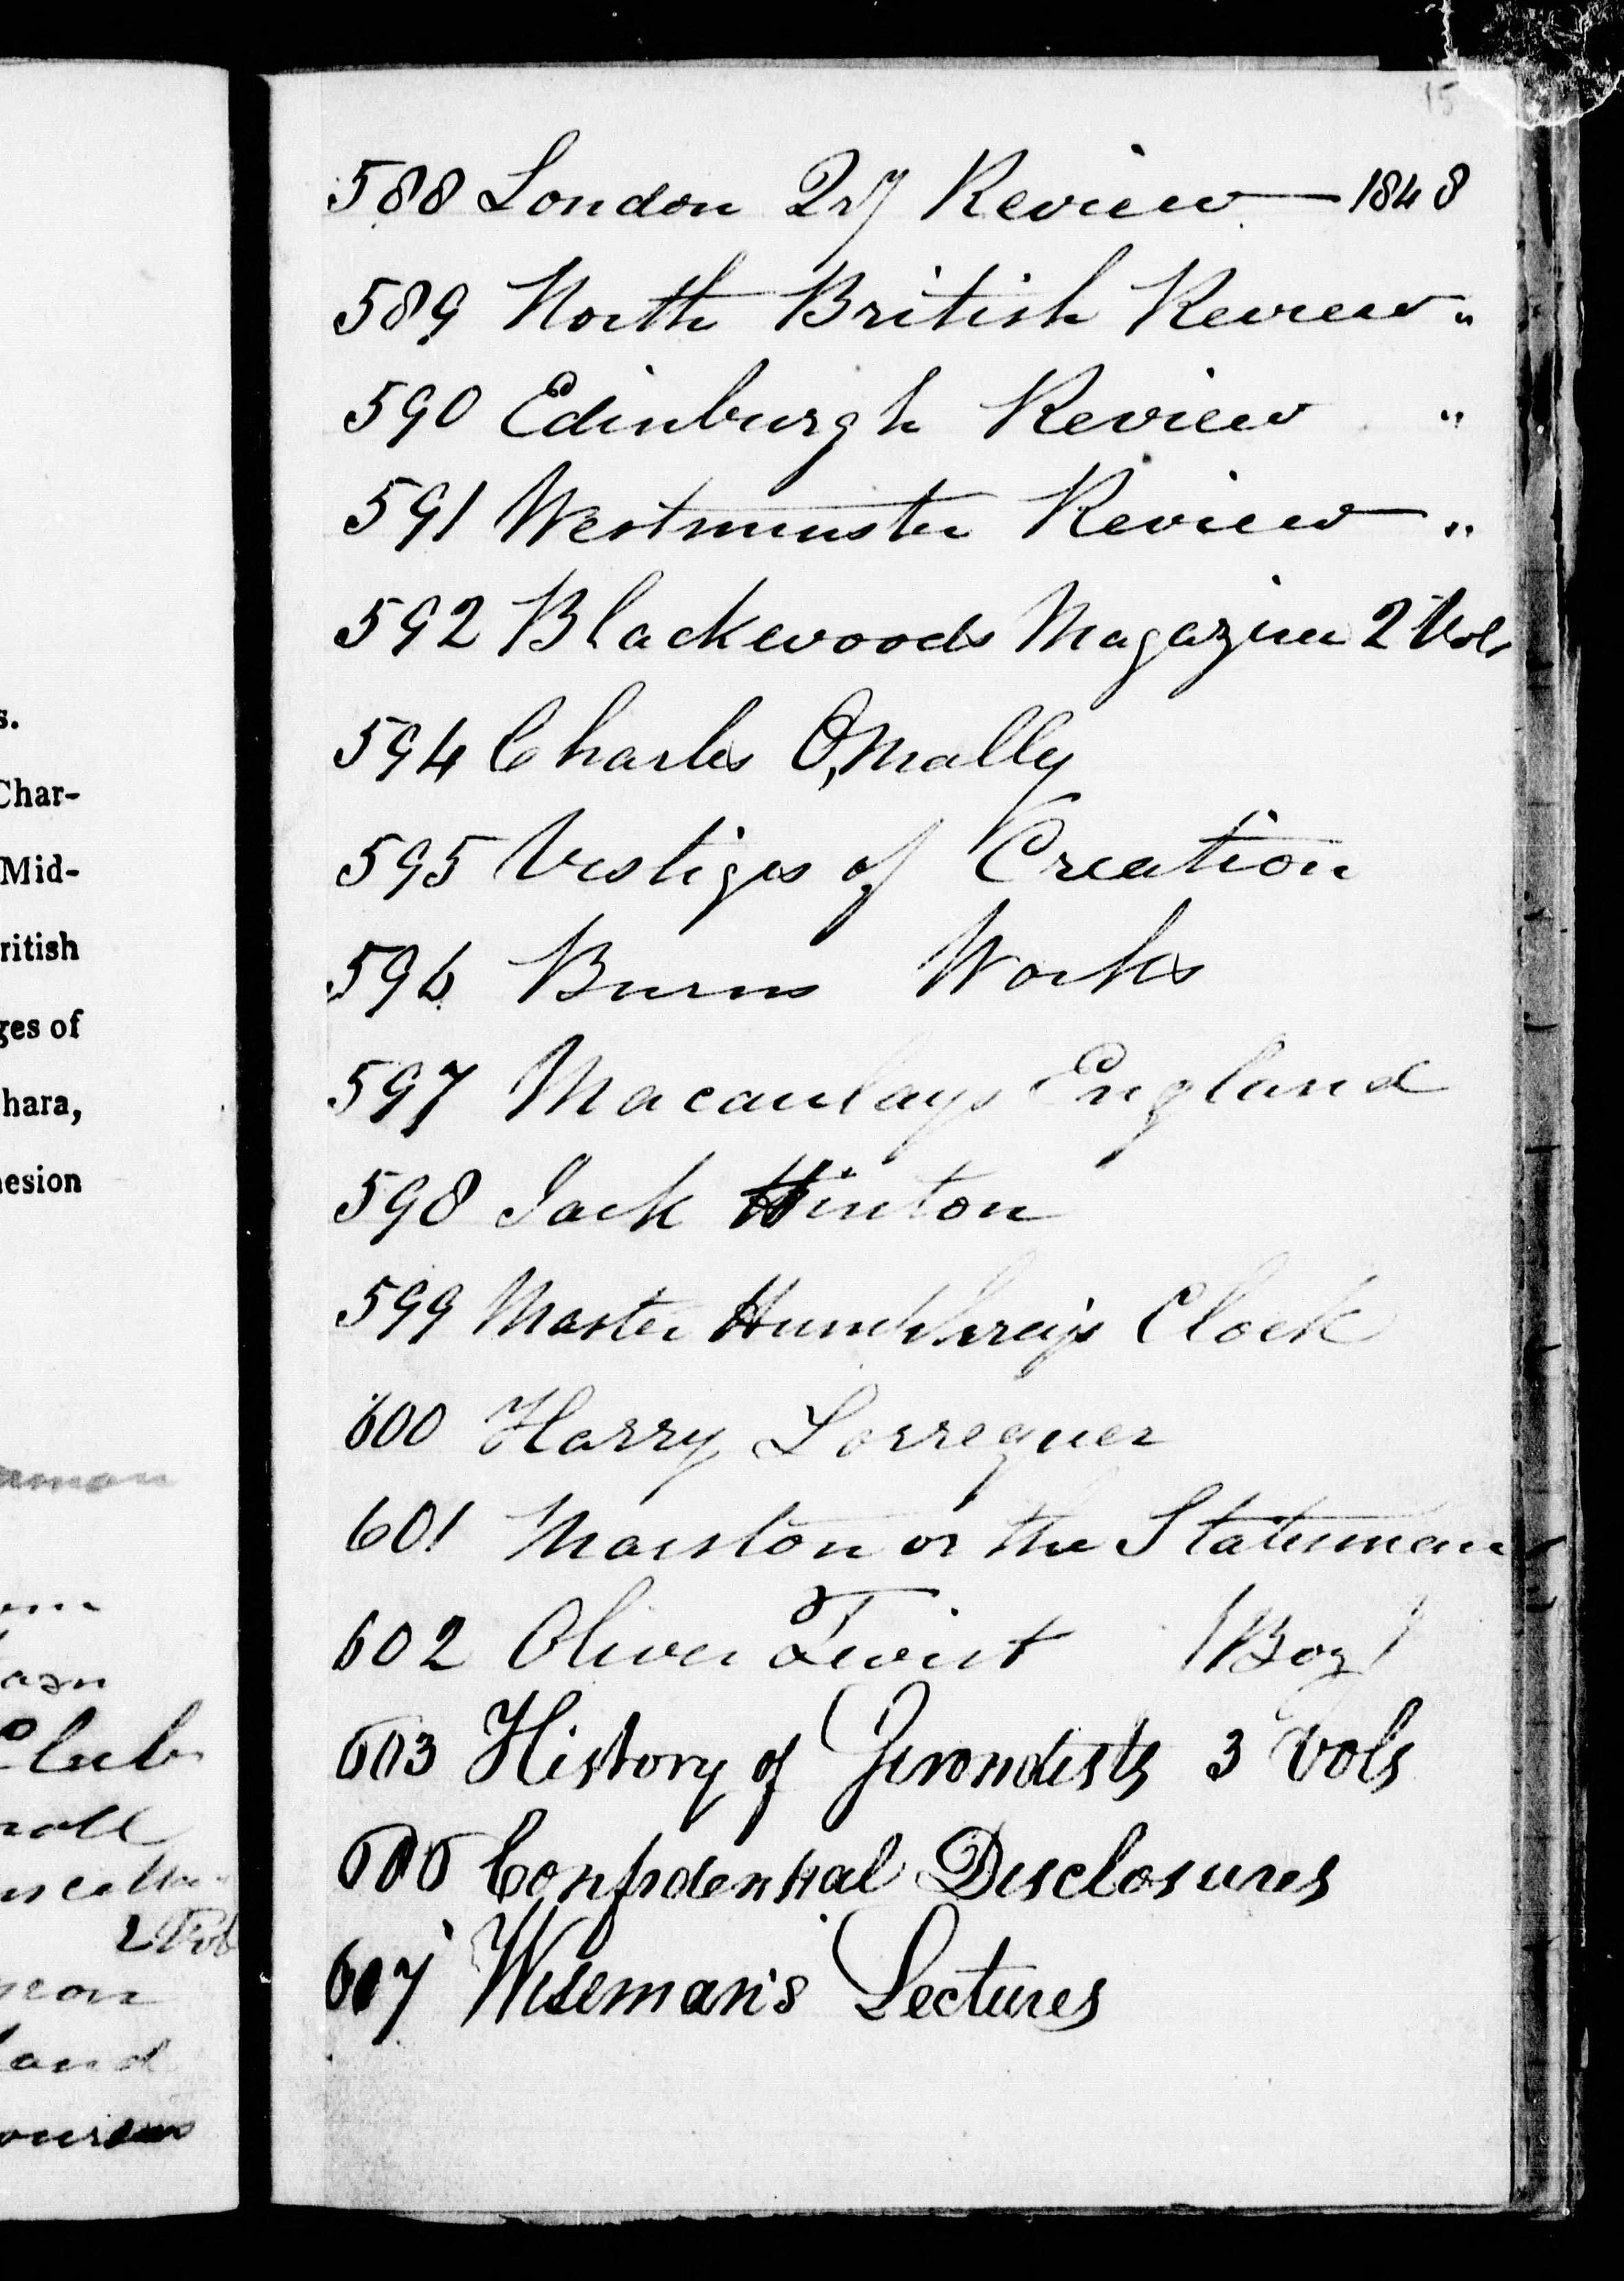 s.
Char-
Mid-
ritish
ges of
hara,
nesion
Club
2 Vol
land
15
588 London Qry Review — 1848
589 North British Review "
590 Edinburgh Review "
591 Westminster Review — "
592 Blackwoods Magazine 2 Vols
594 Charles O,Mally
595 Vestiges of Creation
596 Burns Works
597 Macaulays England
598 Jack Hinton
599 Master Humphreys Clock
600 Harry Lorrequer
601 Marston or the Statesman
602 Oliver Twist (Boz)
603 History of Girondists 3 Vols
606 Confidential Disclosures
607 Wiseman's Lectures